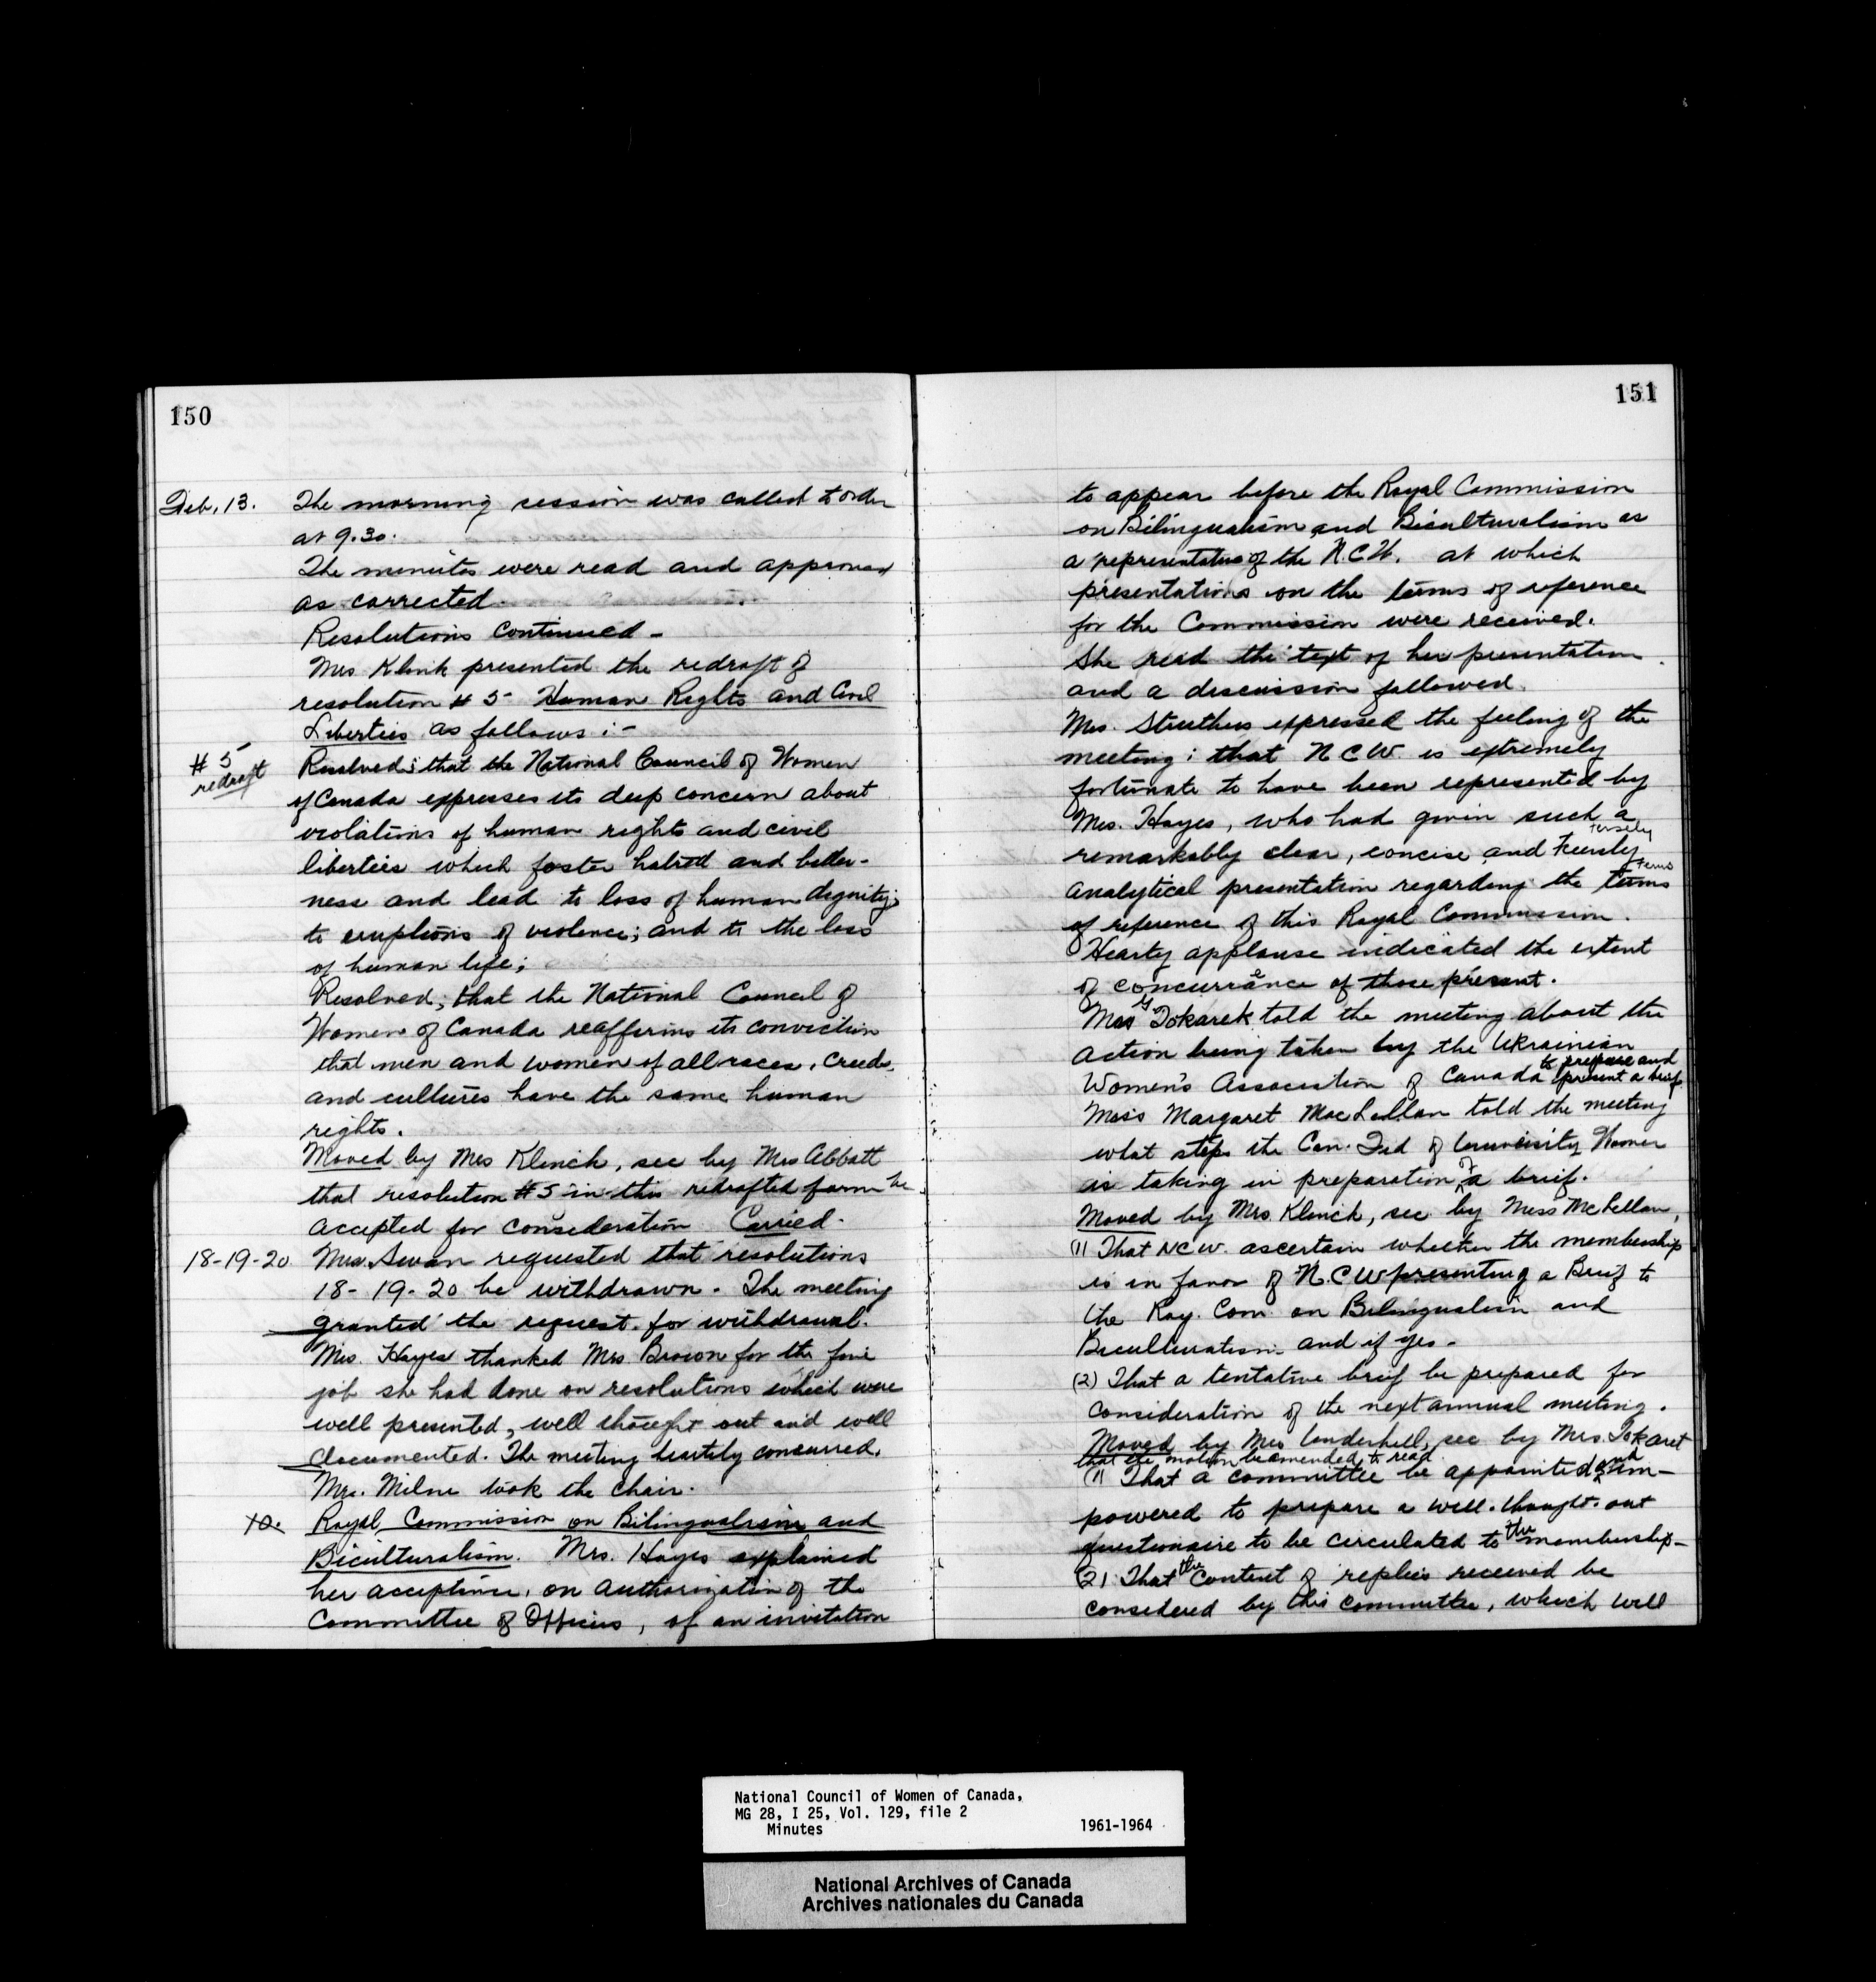 150
Feb. 13. The morning session was called to order
at 9.30.
The minutes were read and approved
as corrected.
Resolutions continued -
Mrs Klenk presented the redraft of
resolution # 5 - Human Rights and Civil
Liberties as follows :-
# 5 redraft Resolved; that the National Council of Women
of Canada expresses its deep concern about
violations of human rights and civil
liberties which foster hatred and bitter-
ness and lead to loss of human dignity;
to eruptions of violence; and to the loss
of human life;
Resolved; that the National Council of
Women of Canada reaffirms its conviction
that men and women of all races, creeds,
and cultures have the same human
rights.
Moved by Mrs Klenck, sec by Mrs Abbott
that resolution #5 in this redrafted form be
accepted for consideration Carried.
18-19-20 Mrs. Swan requested that resolutions
18-19-20 be withdrawn. The meeting
granted the request for withdrawal.
Mrs. Hayes thanked Mrs. Brown for the fine
job she had done on resolutions which were
well presented, well thought out and well
documented. The meeting heartily concurred.
Mrs. Milne took the chair.
10. Royal Commission on Bilingualism and
Biculturalism. Mrs. Hayes explained
her acceptance, on authorization of the
Committee of Officers, of an invitation
151
to appear before the Royal Commission
on Bilingualism and Biculturalism as
a representative of the N.C.W. at which
presentations on the terms of reference
for the Commission were received.
She read the text of her presentation
and a discussion followed.
Mrs. Struthers expressed the feeling of the
meeting: that NCW is extremely
fortunate to have been represented by
Mrs. Hayes, who had given such a
remarkably clear, concise and tersely
analytical presentation regarding the terms
of reference of this Royal Commission.
Hearty applause indicated the extent
of concurrance of those present.
Mrs Tokarek told the meeting about the
action being taken by the Ukrainian
Women's Association of Canada to prepare and present a brief
Miss Margaret MacLellan told the meeting
what steps the Can. Fed of University Women
is taking in preparation of a brief.
Moved by Mrs. Klenck, sec by Miss McLellan,
(1) That NCW. ascertain whether the membership
is in favor of N.C.W presenting a Brief to
the Roy. Com. on Bilingualism and
Biculturalism - and if yes -
(2) That a tentative brief be prepared for
consideration of the next annual meeting.
Moved by Mrs Underhill, sec by Mrs. Tokarek
that the motion be amended to read
(1) That a committee be appointed and em-
powered to prepare a well-thought-out
questionaire to be circulated to the membership -
(2) That the content of replies received be
considered by this committee, which will
National Council of Women of Canada,
MG 28, I 25, Vol. 129, file 2
Minutes 1961-1964
National Archives of Canada
Archives nationales du Canada